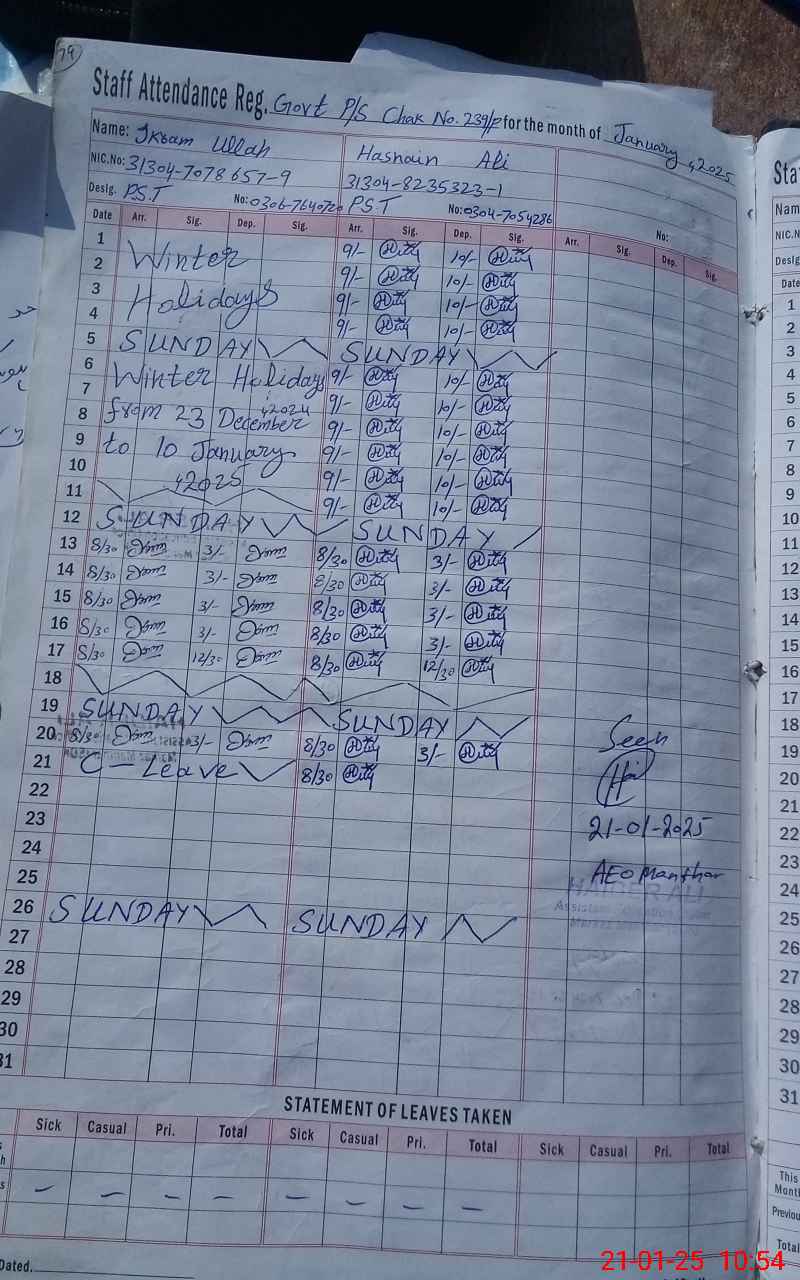 79
Staff Attendance Reg. Govt P/S Chak No. 239/P for the month of January ,2025
Name: Ikram Ullah Hasnain Ali
NIC.No: 31304-7078657-9 31304-8235323-1
Desig. P.S.T No: 0306-7640720 P.S.T No: 0304-7054286 No:
Date Arr. Sig. Dep. Sig. Arr. Sig. Dep. Sig. Arr. Sig. Dep. Sig.
1 9/- 10/-
2 Winter 9/- 10/-
3 Holidays 9/- 10/-
4 9/- 10/-
5 SUNDAY SUNDAY
6 Winter Holidays 9/- 10/-
7 9/- 10/-
8 from 23 December ,2024 9/- 10/-
9 to 10 January 9/- 10/-
10 ,2025 9/- 10/-
11 9/- 10/-
12 SUNDAY SUNDAY
13 8/30 3/- 8/30 3/-
14 8/30 3/- 8/30 3/-
15 8/30 3/- 8/30 3/-
16 8/30 3/- 8/30 3/-
17 8/30 12/30 8/30 12/30
18
19 SUNDAY SUNDAY
20 8/30 3/- 8/30 3/-
21 C-Leave 8/30
22
23
24
25
26 SUNDAY SUNDAY
27
28
29
30
31
Seen
21-01-2025
AEO Manthar
HAIDER ALI
STATEMENT OF LEAVES TAKEN
Sick Casual Pri. Total Sick Casual Pri. Total Sick Casual Pri. Total
– – – – – – – –
Dated.
Sta
Nam
NIC.N
Desig
Date
1
2
3
4
5
6
7
8
9
10
11
12
13
14
15
16
17
18
19
20
21
22
23
24
25
26
27
28
29
30
31
This
Mont
Previou
Total
21-01-25 10:54